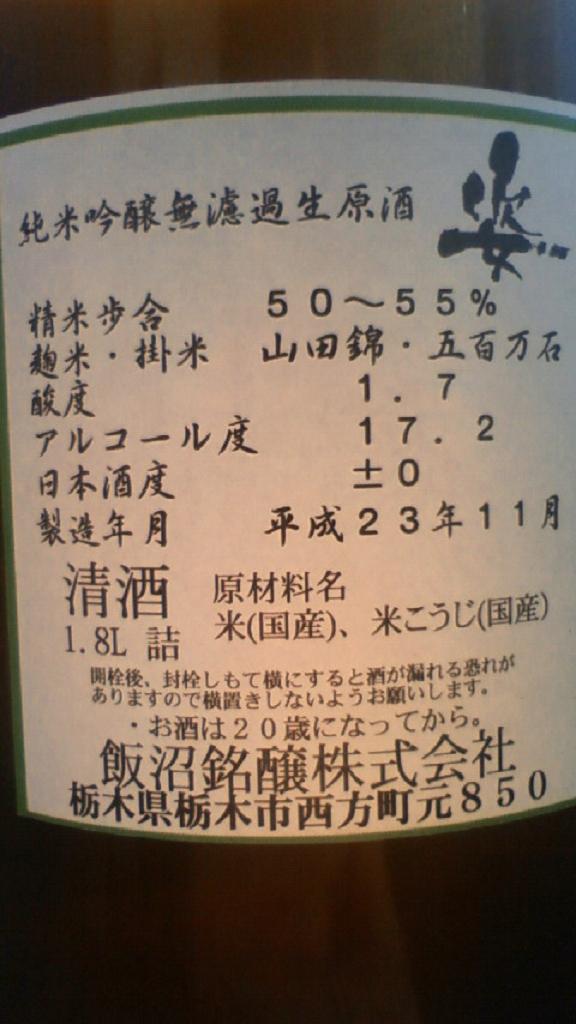 姿
純米吟醸無濾過生原酒
精米歩合 50～55%
麹米・掛米 山田錦・五百万石
酸度 1.7
アルコール度 17.2
日本酒度 ±0
製造年月 平成23年11月
清酒 原材料名
1.8L 詰 米(国産)、米こうじ(国産)
開栓後、封栓しもて横にすると酒が漏れる恐れが
ありますので横置きしないようお願いします。
・お酒は20歳になってから。
飯沼銘醸株式会社
栃木県栃木市西方町元850